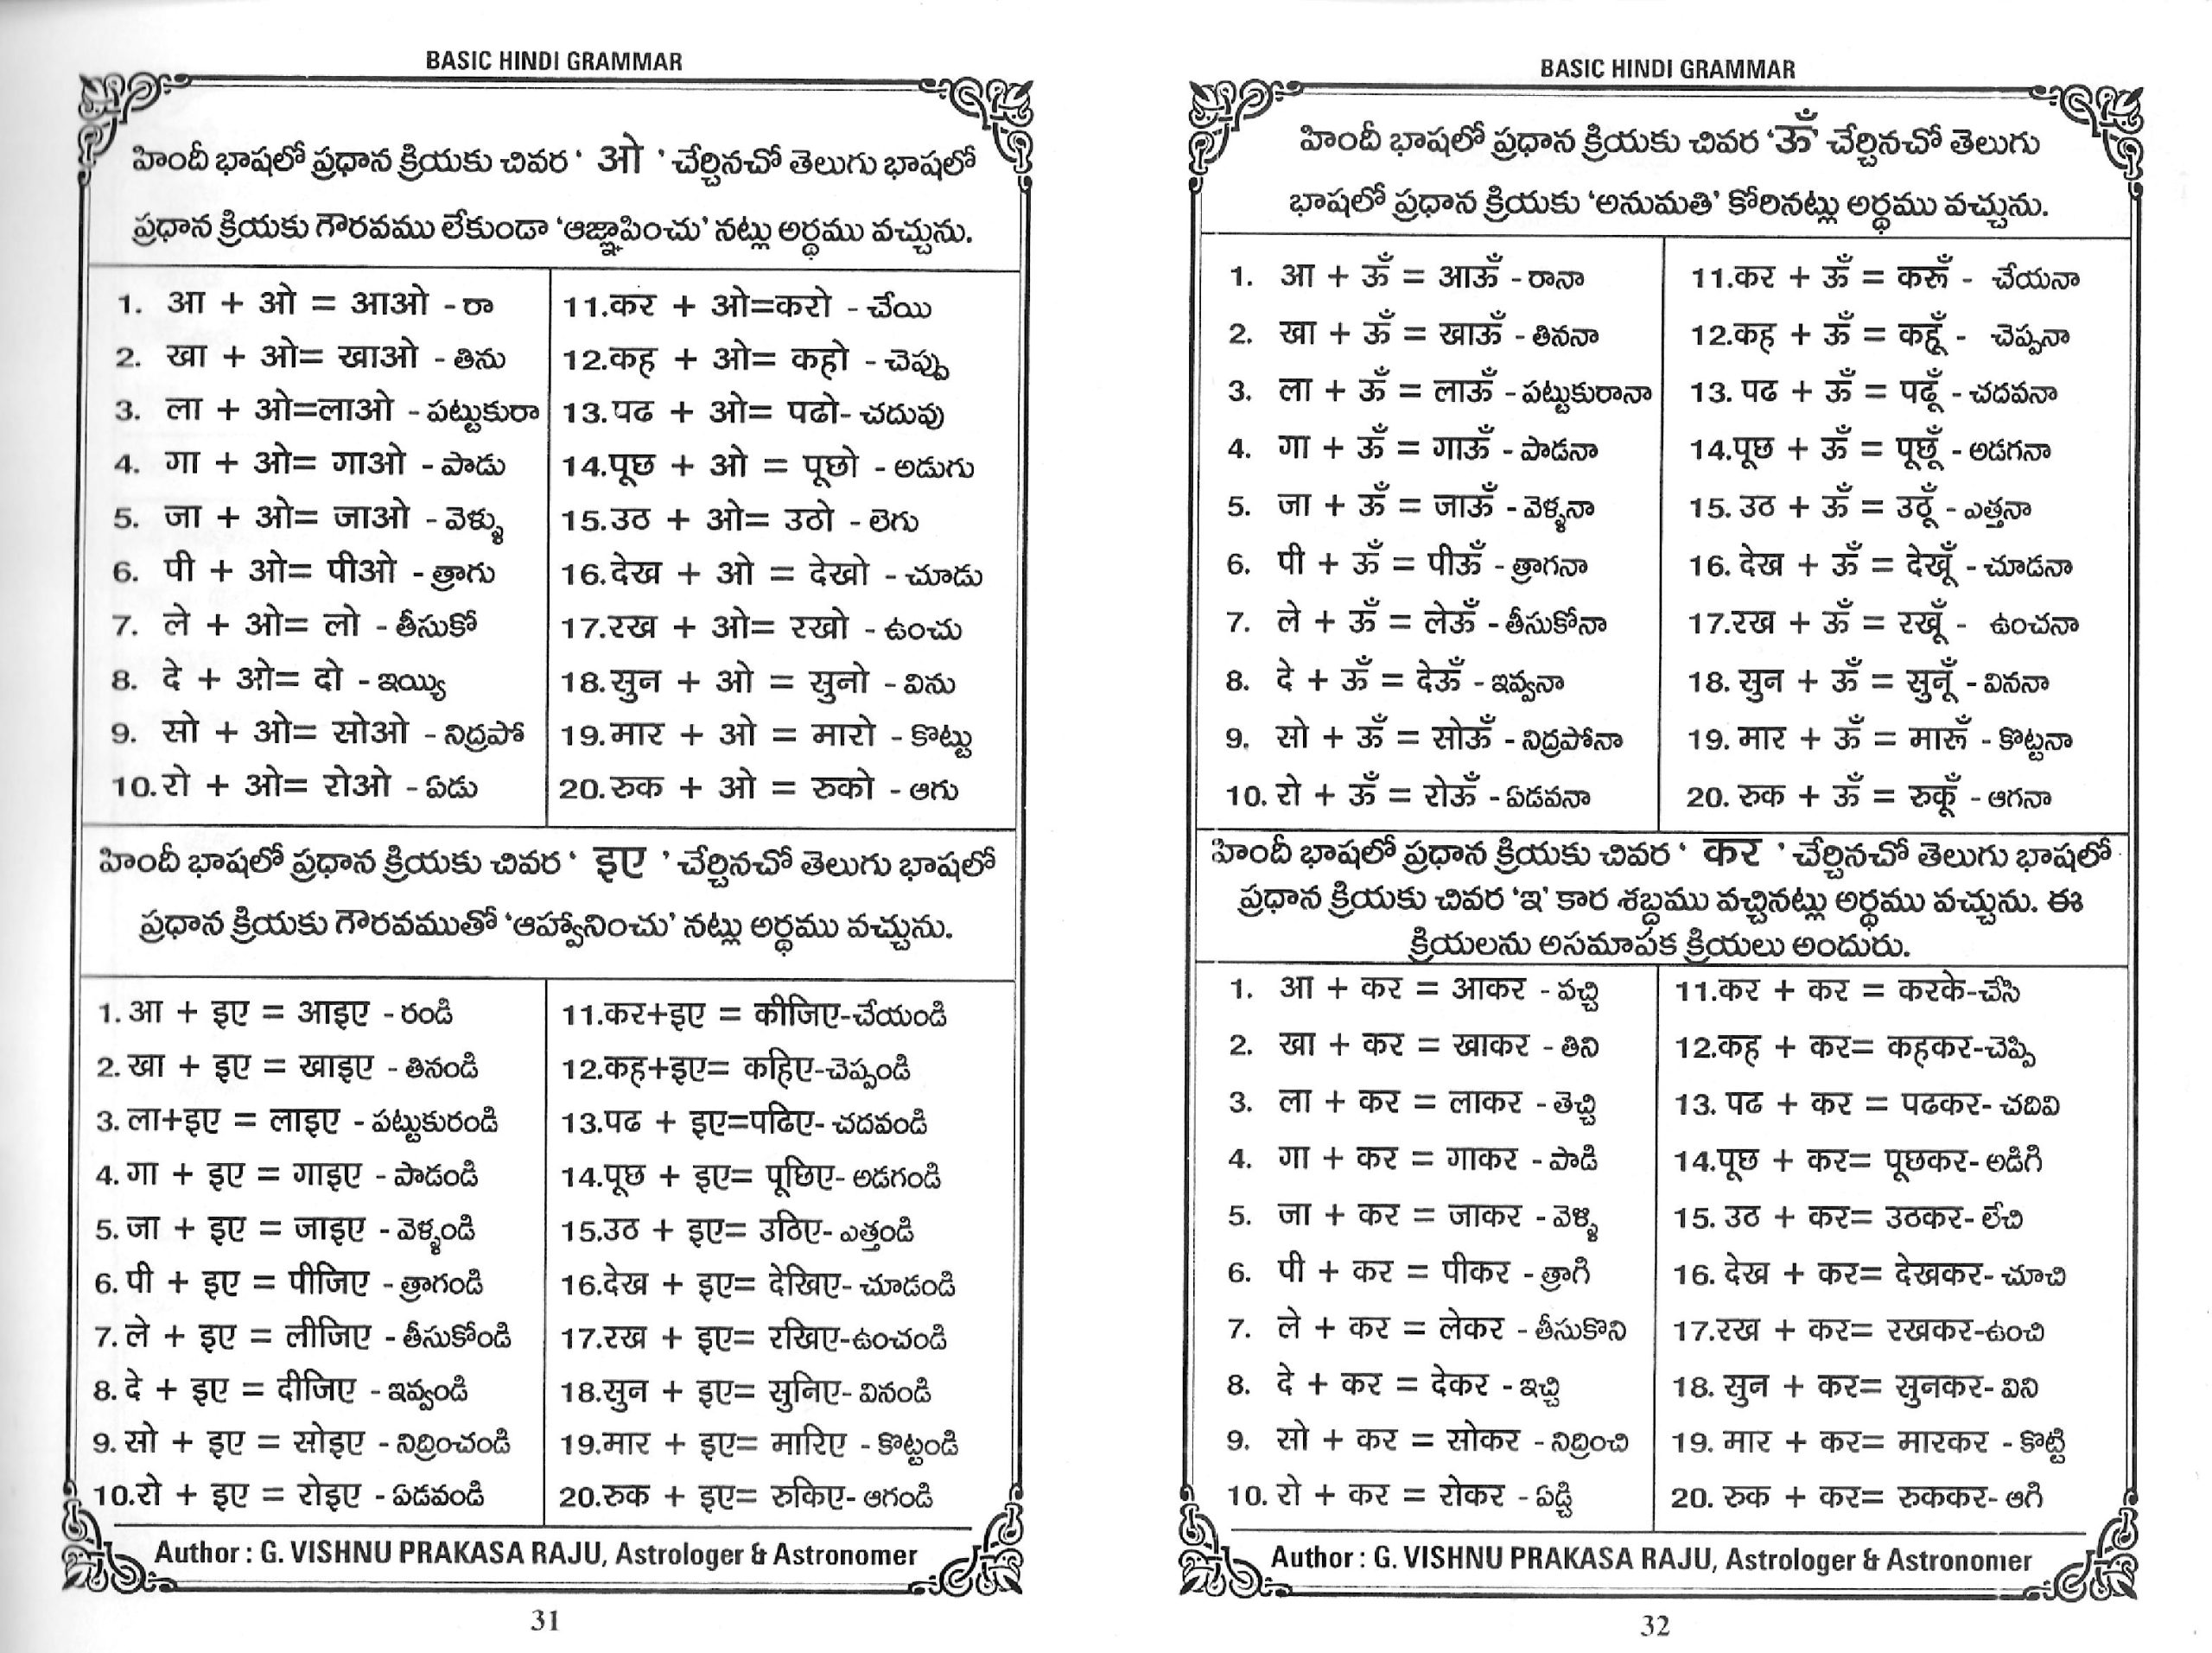 BASIC HINDI GRAMMAR
హిందీ భాషలో ప్రధాన క్రియకు చివర ' ओ ' చేర్చినచో తెలుగు భాషలో
ప్రధాన క్రియకు గౌరవము లేకుండా 'ఆజ్ఞాపించు' నట్లు అర్థము వచ్చును.
1. आ + ओ = आओ - రా
2. खा + ओ= खाओ - తిను
3. ला + ओ=लाओ - పట్టుకురా
4. गा + ओ= गाओ - పాడు
5. जा + ओ= जाओ - వెళ్ళు
6. पी + ओ= पीओ - త్రాగు
7. ले + ओ= लो - తీసుకో
8. दे + ओ= दो - ఇయ్యి
9. सो + ओ= सोओ - నిద్రపో
10.रो + ओ= रोओ - ఏడు
11.कर + ओ=करो - చేయి
12.कह + ओ= कहो - చెప్పు
13.पढ + ओ= पढो- చదువు
14.पूछ + ओ = पूछो - అడుగు
15.उठ + ओ= उठो - లెగు
16.देख + ओ = देखो - చూడు
17.रख + ओ= रखो - ఉంచు
18.सुन + ओ = सुनो - విను
19.मार + ओ = मारो - కొట్టు
20.रुक + ओ = रुको - ఆగు
హిందీ భాషలో ప్రధాన క్రియకు చివర ' इए ' చేర్చినచో తెలుగు భాషలో
ప్రధాన క్రియకు గౌరవముతో 'ఆహ్వానించు' నట్లు అర్థము వచ్చును.
1. आ + इए = आइए - రండి
2. खा + इए = खाइए - తినండి
3. ला+इए = लाइए - పట్టుకురండి
4. गा + इए = गाइए - పాడండి
5. जा + इए = जाइए - వెళ్ళండి
6. पी + इए = पीजिए - త్రాగండి
7. ले + इए = लीजिए - తీసుకోండి
8. दे + इए = दीजिए - ఇవ్వండి
9. सो + इए = सोइए - నిద్రించండి
10.रो + इए = रोइए - ఏడవండి
11.कर+इए = कीजिए-చేయండి
12.कह+इए= कहिए-చెప్పండి
13.पढ + इए=पढिए- చదవండి
14.पूछ + इए= पूछिए- అడగండి
15.उठ + इए= उठिए- ఎత్తండి
16.देख + इए= देखिए- చూడండి
17.रख + इए= रखिए-ఉంచండి
18.सुन + इए= सुनिए- వినండి
19.मार + इए= मारिए - కొట్టండి
20.रुक + इए= रुकिए- ఆగండి
Author : G. VISHNU PRAKASA RAJU, Astrologer & Astronomer
31
BASIC HINDI GRAMMAR
హిందీ భాషలో ప్రధాన క్రియకు చివర 'ऊँ' చేర్చినచో తెలుగు
భాషలో ప్రధాన క్రియకు 'అనుమతి' కోరినట్లు అర్థము వచ్చును.
1. आ + ऊँ = आऊँ - రానా
2. खा + ऊँ = खाऊँ - తిననా
3. ला + ऊँ = लाऊँ - పట్టుకురానా
4. गा + ऊँ = गाऊँ - పాడనా
5. जा + ऊँ = जाऊँ - వెళ్ళనా
6. पी + ऊँ = पीऊँ - త్రాగనా
7. ले + ऊँ = लेऊँ - తీసుకోనా
8. दे + ऊँ = देऊँ - ఇవ్వనా
9. सो + ऊँ = सोऊँ - నిద్రపోనా
10. रो + ऊँ = रोऊँ - ఏడవనా
11.कर + ऊँ = करूँ - చేయనా
12.कह + ऊँ = कहूँ - చెప్పనా
13. पढ + ऊँ = पढूँ - చదవనా
14.पूछ + ऊँ = पूछूँ - అడగనా
15. उठ + ऊँ = उठूँ - ఎత్తనా
16. देख + ऊँ = देखूँ - చూడనా
17.रख + ऊँ = रखूँ - ఉంచనా
18. सुन + ऊँ = सुनूँ - విననా
19. मार + ऊँ = मारूँ - కొట్టనా
20. रुक + ऊँ = रुकूँ - ఆగనా
హిందీ భాషలో ప్రధాన క్రియకు చివర ' कर ' చేర్చినచో తెలుగు భాషలో
ప్రధాన క్రియకు చివర 'ఇ' కార శబ్దము వచ్చినట్లు అర్థము వచ్చును. ఈ
క్రియలను అసమాపక క్రియలు అందురు.
1. आ + कर = आकर - వచ్చి
2. खा + कर = खाकर - తిని
3. ला + कर = लाकर - తెచ్చి
4. गा + कर = गाकर - పాడి
5. जा + कर = जाकर - వెళ్ళ
6. पी + कर = पीकर - త్రాగి
7. ले + कर = लेकर - తీసుకొని
8. दे + कर = देकर - ఇచ్చి
9. सो + कर = सोकर - నిద్రించి
10. रो + कर = रोकर - ఏడ్చి
11.कर + कर = करके-చేసి
12.कह + कर= कहकर-చెప్పి
13. पढ + कर = पढकर- చదివి
14.पूछ + कर= पूछकर- అడిగి
15. उठ + कर= उठकर- లేచి
16. देख + कर= देखकर- చూచి
17.रख + कर= रखकर-ఉంచి
18. सुन + कर= सुनकर- విని
19. मार + कर= मारकर - కొట్టి
20. रुक + कर= रुककर- ఆగి
Author : G. VISHNU PRAKASA RAJU, Astrologer & Astronomer
32